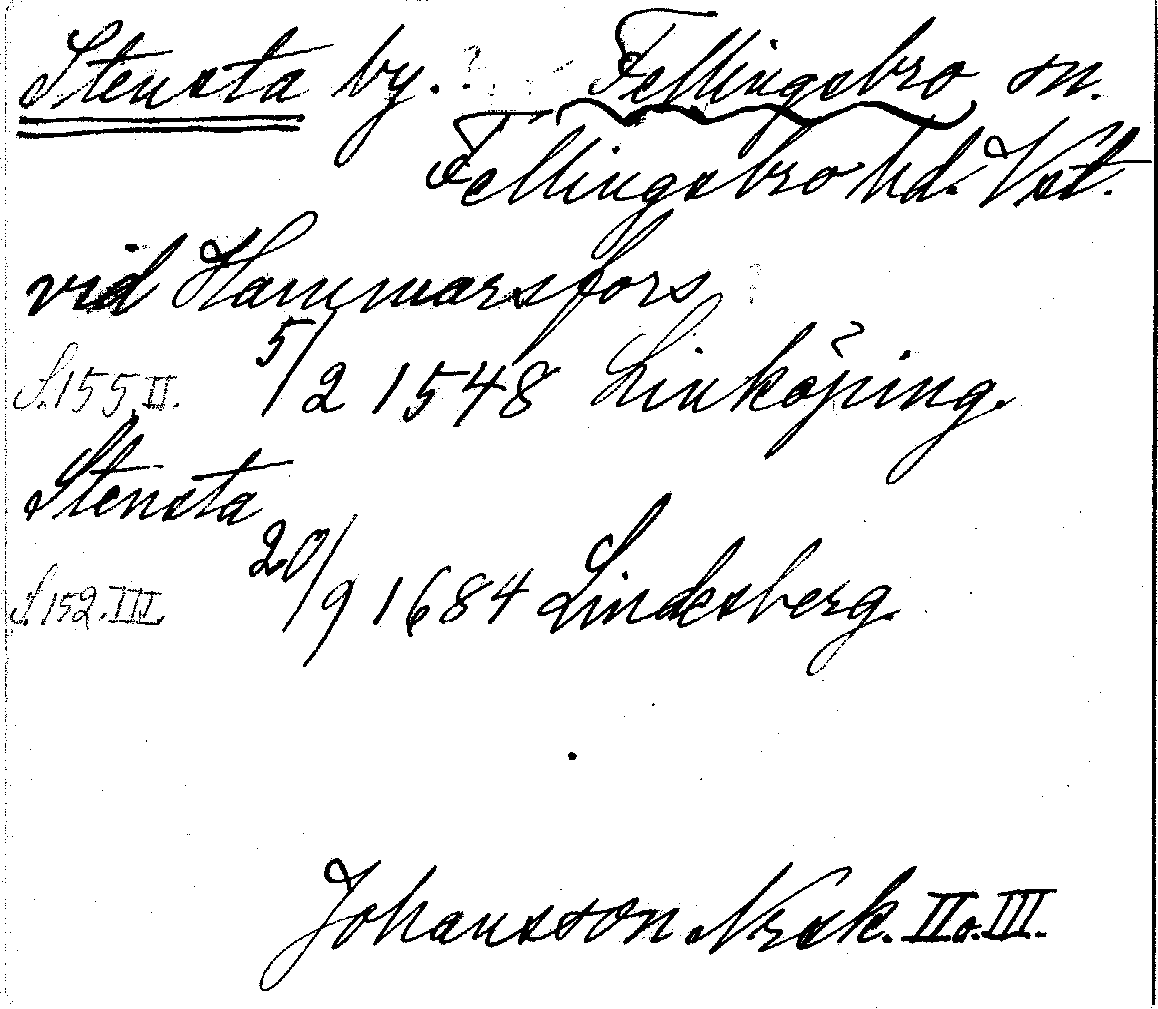 Stensta by. Fellingsbro sn.
Fellingsbro hd. Vst.
vid Hammarsfors
S.155.II. 5/2 1548 Linköping.
Stensta
S.152.III. 20/9 1684 Lindesberg.
Johansson Nrsk. II o. III.